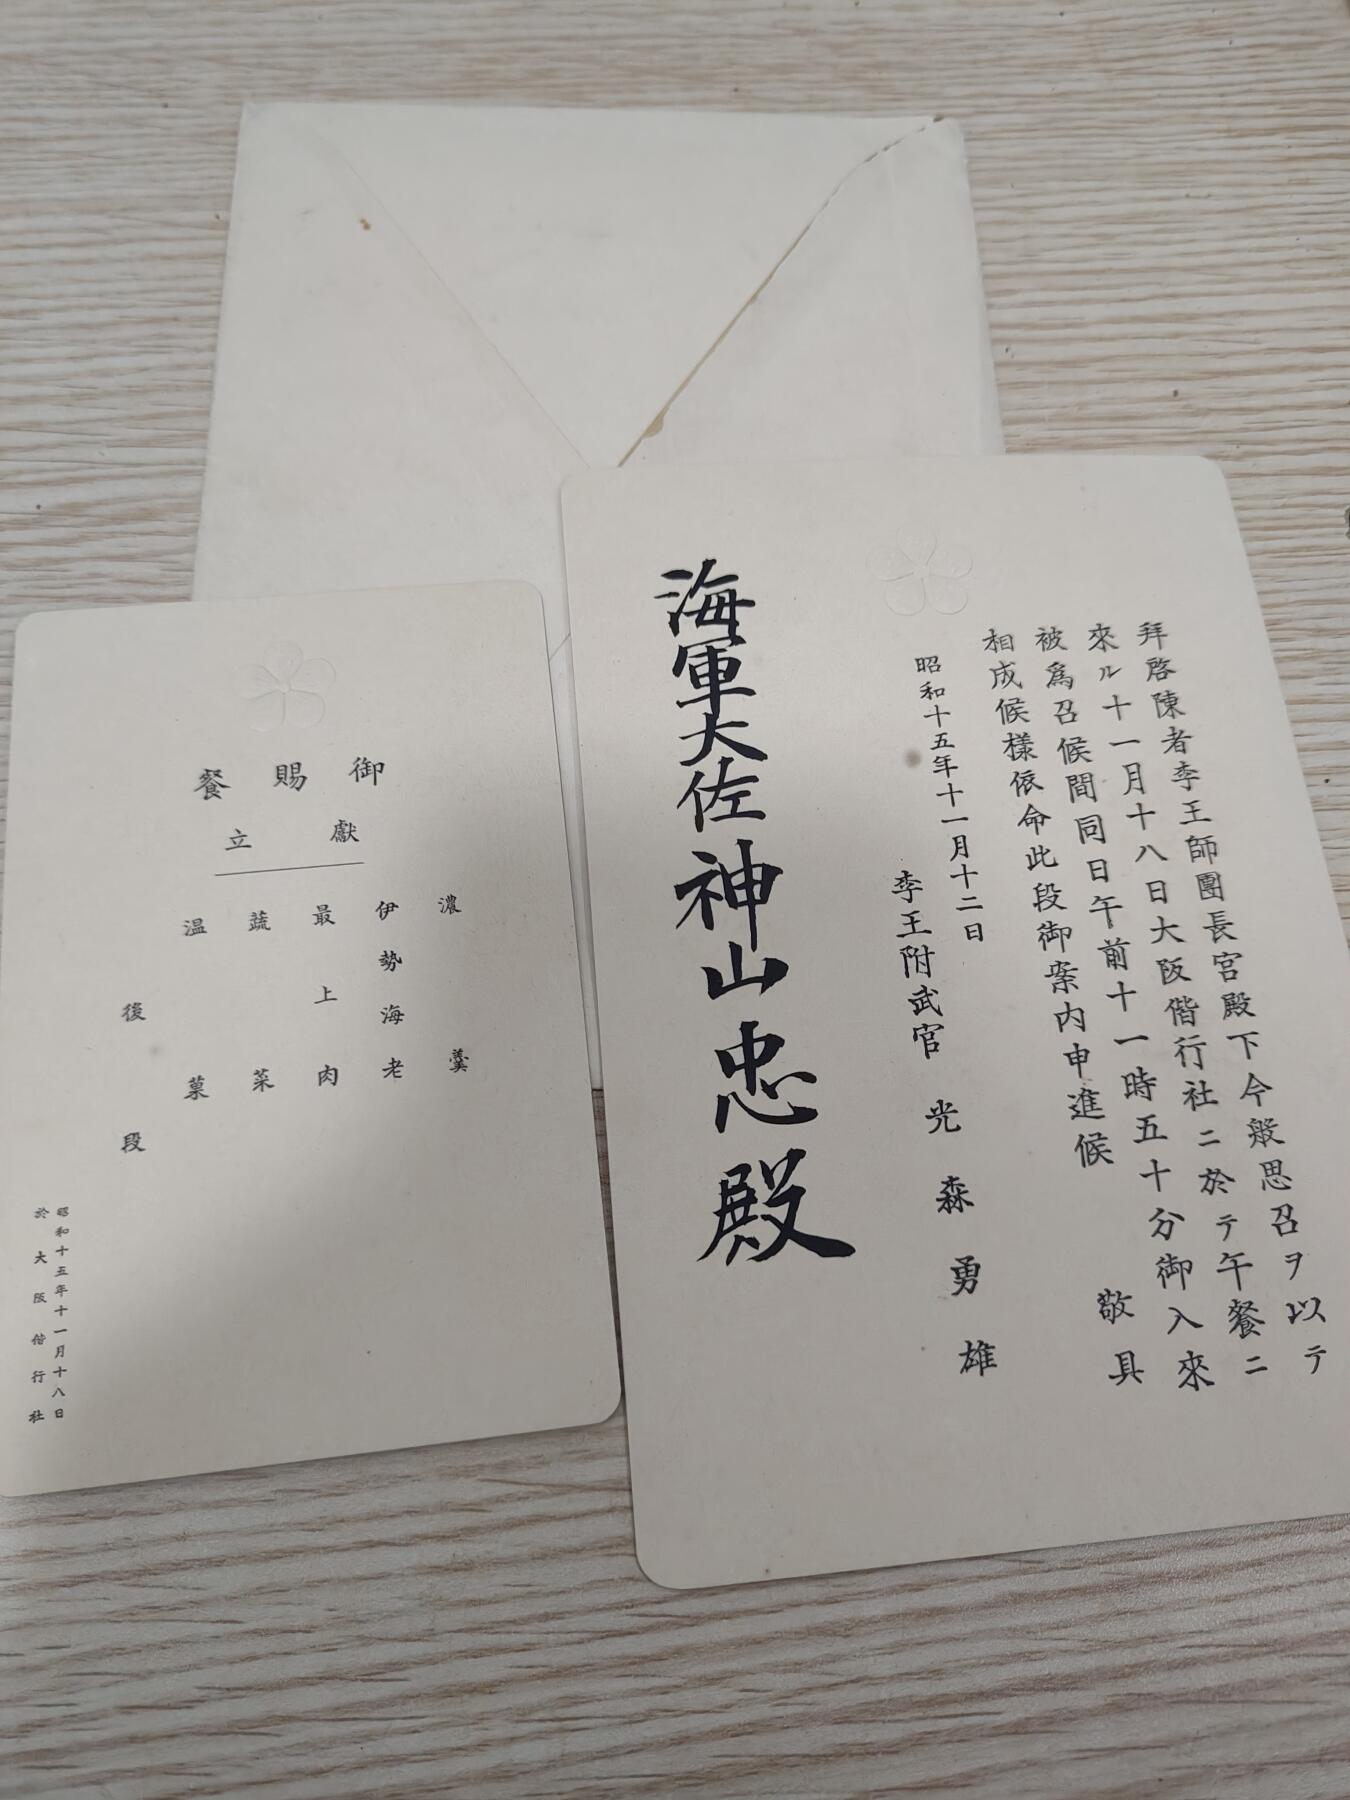 拜啓陳者李王師團長宮殿下今般思召ヲ以テ
來ル十一月十八日大阪偕行社ニ於テ午餐ニ
被爲召候間同日午前十一時五十分御入來
相成候樣依命此段御案內申進候
敬具
昭和十五年十一月十二日
李王附武官 光森勇雄
海軍大佐神山忠殿
御賜餐
獻立
濃羹
伊勢海老
最上肉
蔬菜
温菓
後段
昭和十五年十一月十八日
於大阪偕行社